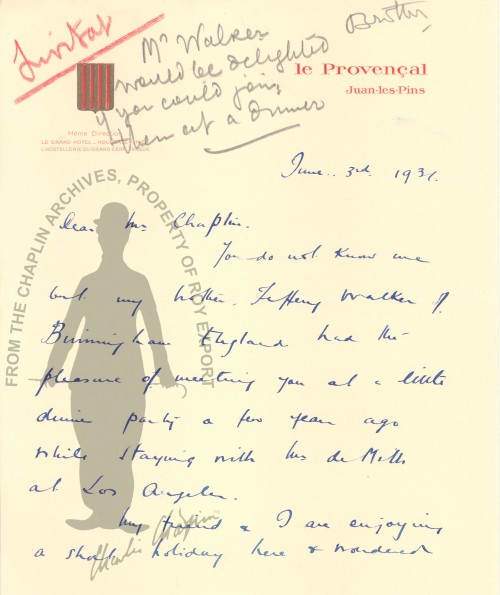 Invitat
Brother
Mr Walker
would be delighted
if you could join
them at a dinner
le Provençal
Juan-les-Pins
Même Direction
LE GRAND HOTEL
June. 3rd. 1931.
FROM THE CHAPLIN ARCHIVES, PROPERTY OF ROY EXPORT
Dear Mr Chaplin.
You do not know me
but my brother. Jeffery Walker of.
Birmingham England had the
pleasure of meeting you at a little
dinner party a few years ago
while staying with Mrs de Mille
at Los Angeles.
My friend & I are enjoying
a short holiday here & wondered
Charlie Chaplin